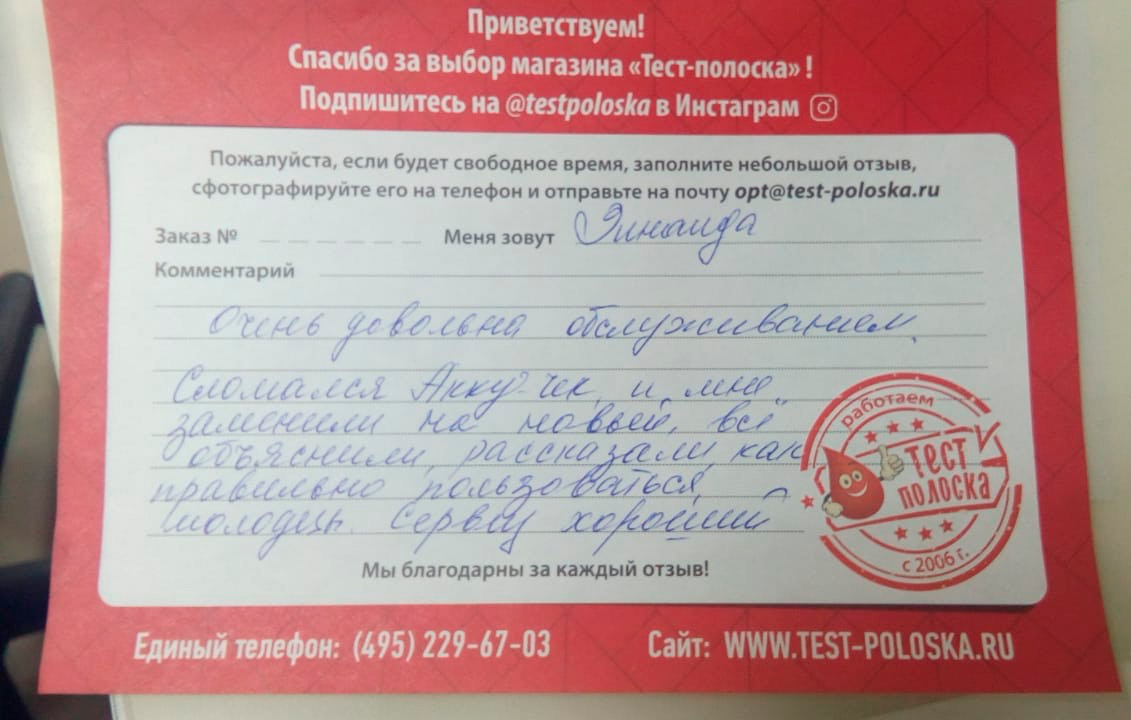 Приветствуем!
Спасибо за выбор магазина «Тест-полоска» !
Подпишитесь на @testpoloska в Инстаграм
Пожалуйста, если будет свободное время, заполните небольшой отзыв,
сфотографируйте его на телефон и отправьте на почту opt@test-poloska.ru
Заказ № _ _ _ _ _ _ Меня зовут Зинаида
Комментарий
Очень довольна обслуживанием.
Сломался Акку-чек, и мне
заменили на новый, всё
объяснили, рассказали, как
правильно пользоваться,
молодцы. Сервис хороший
работаем
тест
полоска
с 2006 г.
Мы благодарны за каждый отзыв!
Единый телефон: (495) 229-67-03 Сайт: WWW.TEST-POLOSKA.RU